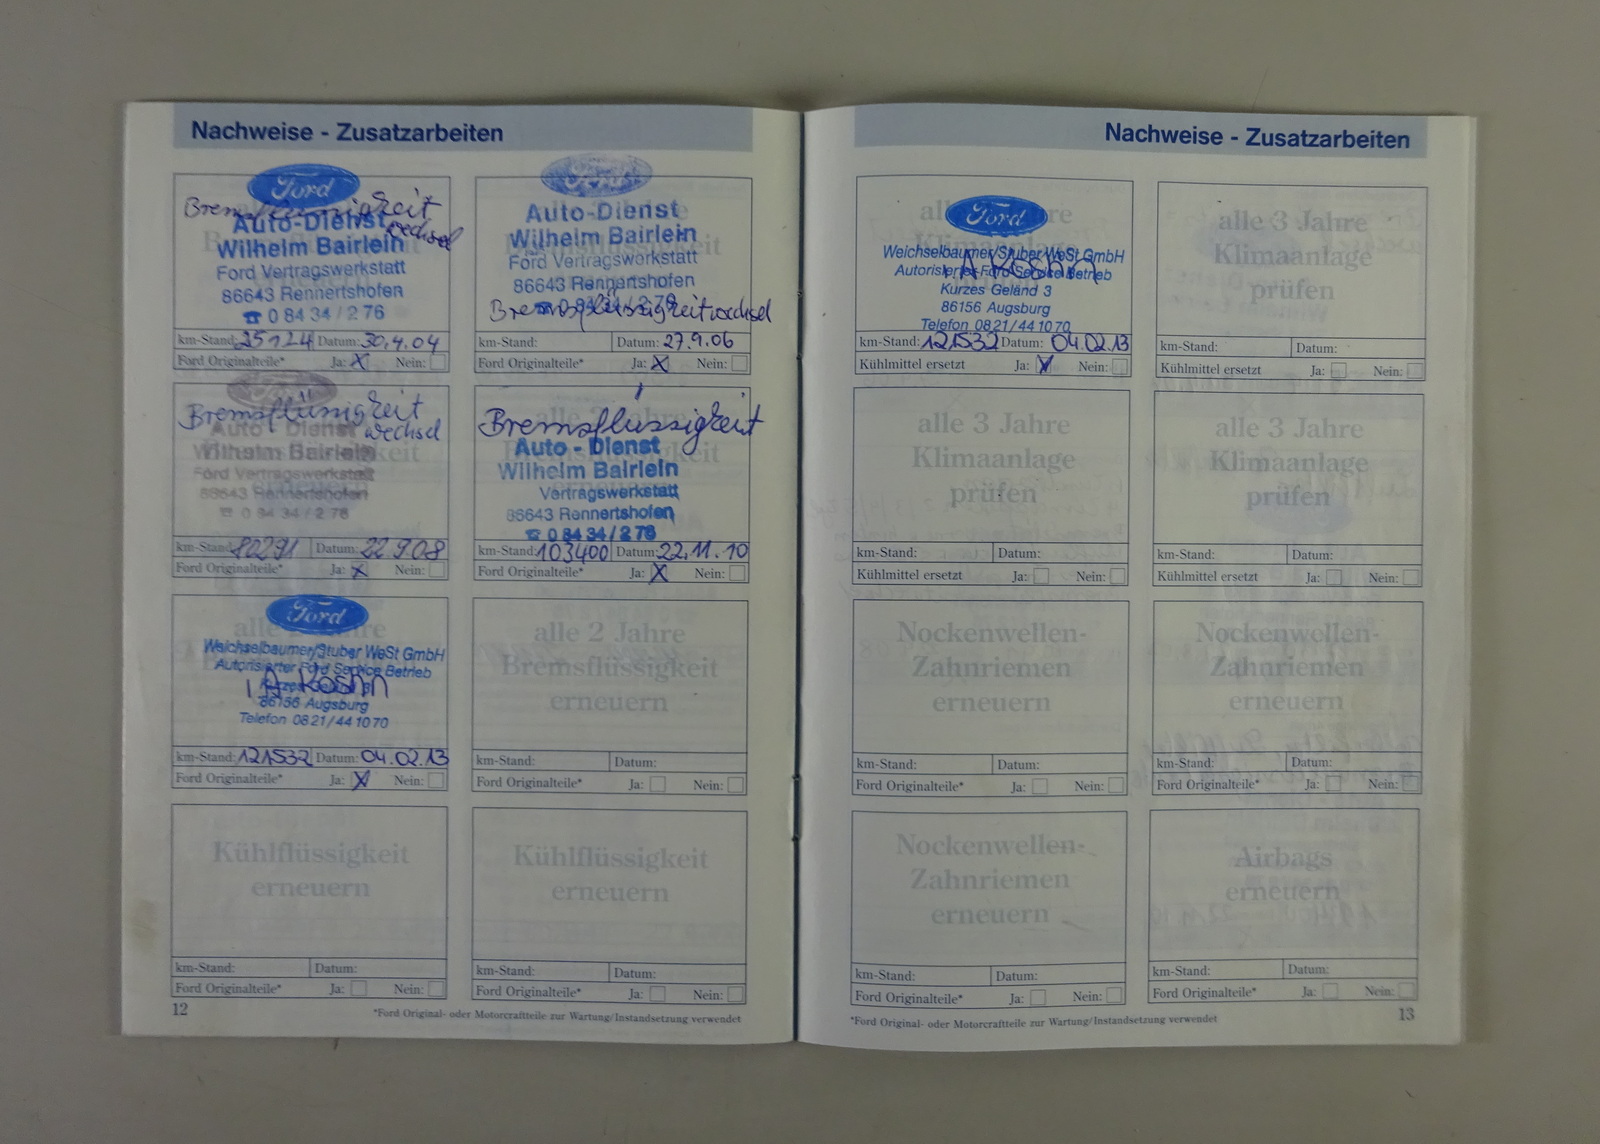 Nachweise - Zusatzarbeiten
Ford
Bremsflüssigkeit
wechsel
Auto-Dienst
Wilhelm Bairlein
Ford Vertragswerkstatt
86643 Rennertshofen
☎ 0 84 34 / 2 76
km-Stand: 25124 Datum: 30.4.04
Ford Originalteile* Ja: X Nein:
Ford
Auto-Dienst
Wilhelm Bairlein
Ford Vertragswerkstatt
86643 Rennertshofen
☎ 0 84 34 / 2 76
Bremsflüssigkeitwechsel
km-Stand: Datum: 27.9.06
Ford Originalteile* Ja: X Nein:
Ford
Bremsflüssigkeit
wechsel
Auto-Dienst
Wilhelm Bairlein
Ford Vertragswerkstatt
86643 Rennertshofen
☎ 0 84 34 / 2 76
km-Stand: 80291 Datum: 22.9.08
Ford Originalteile* Ja: X Nein:
Bremsflüssigkeit
Auto - Dienst
Wilhelm Bairlein
Vertragswerkstatt
86643 Rennertshofen
☎ 0 84 34 / 2 76
km-Stand: 103400 Datum: 22.11.10
Ford Originalteile* Ja: X Nein:
Ford
alle 2 Jahre
Weichselbaumer/Stuber WeSt GmbH
Autorisierter Ford Service Betrieb
86156 Augsburg
Telefon 08 21 / 44 10 70
km-Stand: 121532 Datum: 04.02.13
Ford Originalteile* Ja: X Nein:
alle 2 Jahre
Bremsflüssigkeit
erneuern
km-Stand: Datum:
Ford Originalteile* Ja: Nein:
Kühlflüssigkeit
erneuern
km-Stand: Datum:
Ford Originalteile* Ja: Nein:
Kühlflüssigkeit
erneuern
km-Stand: Datum:
Ford Originalteile* Ja: Nein:
12
*Ford Original- oder Motorcraftteile zur Wartung/Instandsetzung verwendet
Nachweise - Zusatzarbeiten
Ford
Weichselbaumer/Stuber WeSt GmbH
Autorisierter Ford Service Betrieb
Kurzes Geländ 3
86156 Augsburg
Telefon 08 21 / 44 10 70
km-Stand: 121532 Datum: 04.02.13
Kühlmittel ersetzt Ja: X Nein:
alle 3 Jahre
Klimaanlage
prüfen
km-Stand: Datum:
Kühlmittel ersetzt Ja: Nein:
alle 3 Jahre
Klimaanlage
prüfen
km-Stand: Datum:
Kühlmittel ersetzt Ja: Nein:
alle 3 Jahre
Klimaanlage
prüfen
km-Stand: Datum:
Kühlmittel ersetzt Ja: Nein:
Nockenwellen-
Zahnriemen
erneuern
km-Stand: Datum:
Ford Originalteile* Ja: Nein:
Nockenwellen-
Zahnriemen
erneuern
km-Stand: Datum:
Ford Originalteile* Ja: Nein:
Nockenwellen-
Zahnriemen
erneuern
km-Stand: Datum:
Ford Originalteile* Ja: Nein:
Airbags
erneuern
km-Stand: Datum:
Ford Originalteile* Ja: Nein:
*Ford Original- oder Motorcraftteile zur Wartung/Instandsetzung verwendet
13